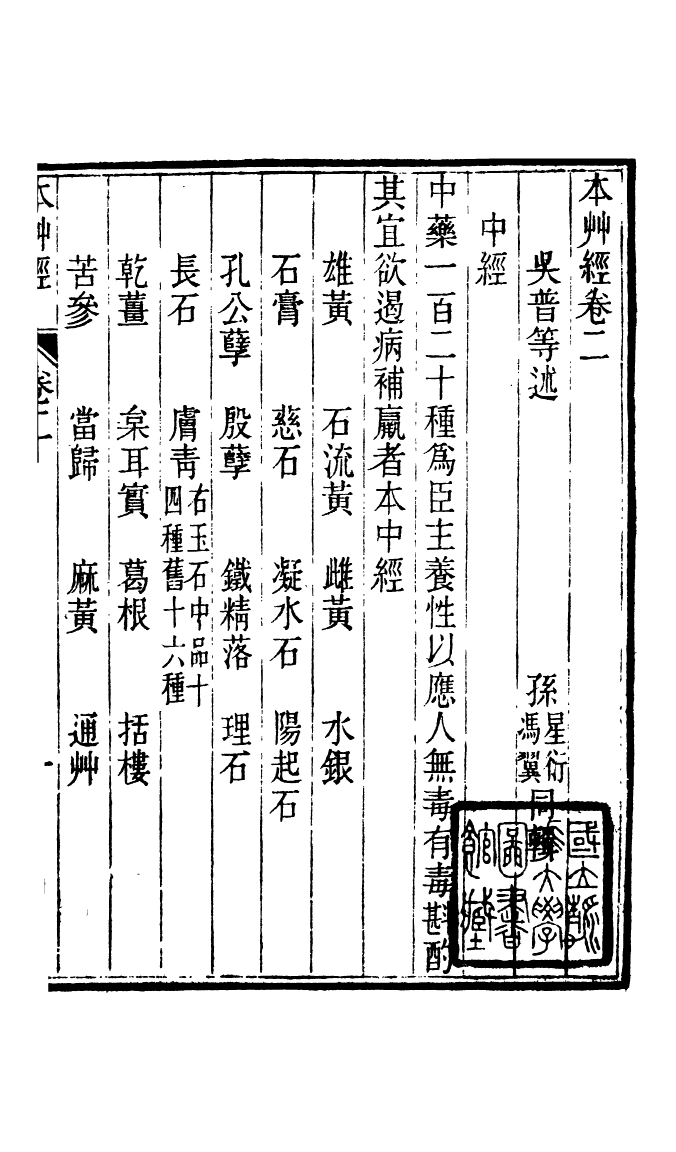 本艸經卷二
吳普等述 孫星衍馮翼同輯
中經
中藥一百二十種爲臣主養性以應人無毒有毒斟酌
其宜欲遏病補羸者本中經
雄黃 石流黃 雌黃 水銀
石膏 慈石 凝水石 陽起石
孔公孽 殷孽 鐵精落 理石
長石 膚靑 右玉石中品十四種舊十六種
乾薑 枲耳實 葛根 括樓
苦參 當歸 麻黃 通艸
本艸經 卷二 一
國立 大學圖書館藏